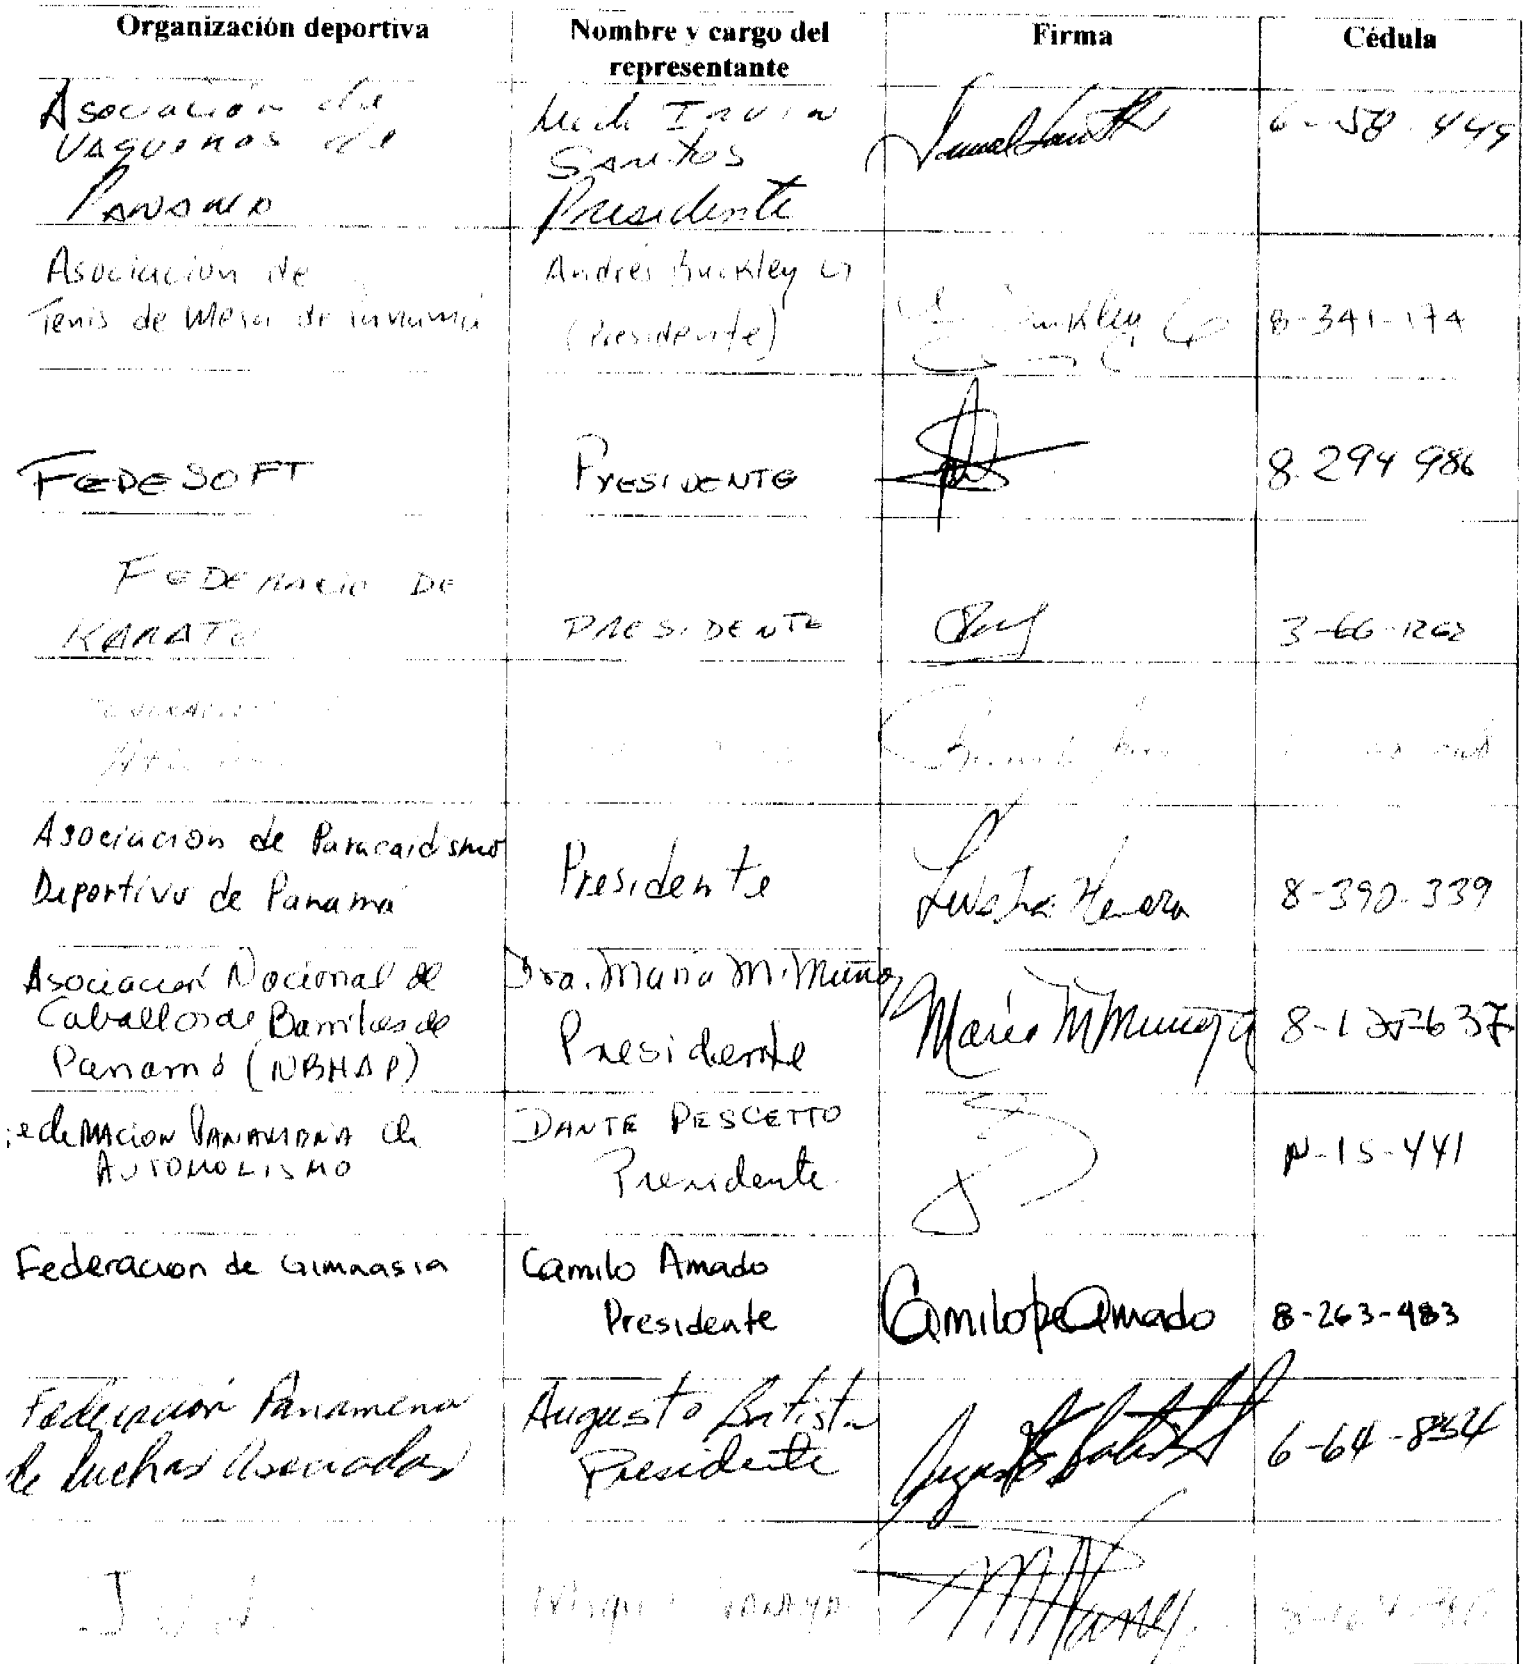 Organización deportiva
Nombre y cargo del
representante
Firma
Cédula
Asociación de
Vaqueros de
Panamá
Irvin
Santos
Presidente
6-58-449
Asociación de
Tenis de Mesa de Panamá
Andrés Buckley G
(Presidente)
Buckley G
8-341-174
FEDESOFT
PRESIDENTE
8.294 986
FEDERACIO DE
KARATE
PRESIDENTE
3-66-1262
Asociacion de Paracaidismo
Deportivo de Panamá
Presidente
Herera
8-390-339
Asociación Nacional de
Caballos de Barriles de
Panamá (NBHAP)
Dra. Maria M. Muñoz
Presidente
Maria M Munoz
8-125-637
edeMACION PANAMEÑA de
AUTOMOLISMO
DANTE PESCETTO
Presidente
N-15-441
Federacion de Gimnasia
Camilo Amado
Presidente
Camilo Amado
8-263-483
Federación Panamena
de Luchas Asociadas
Augusto Batista
Presidente
Augusto Batista
6-64-834